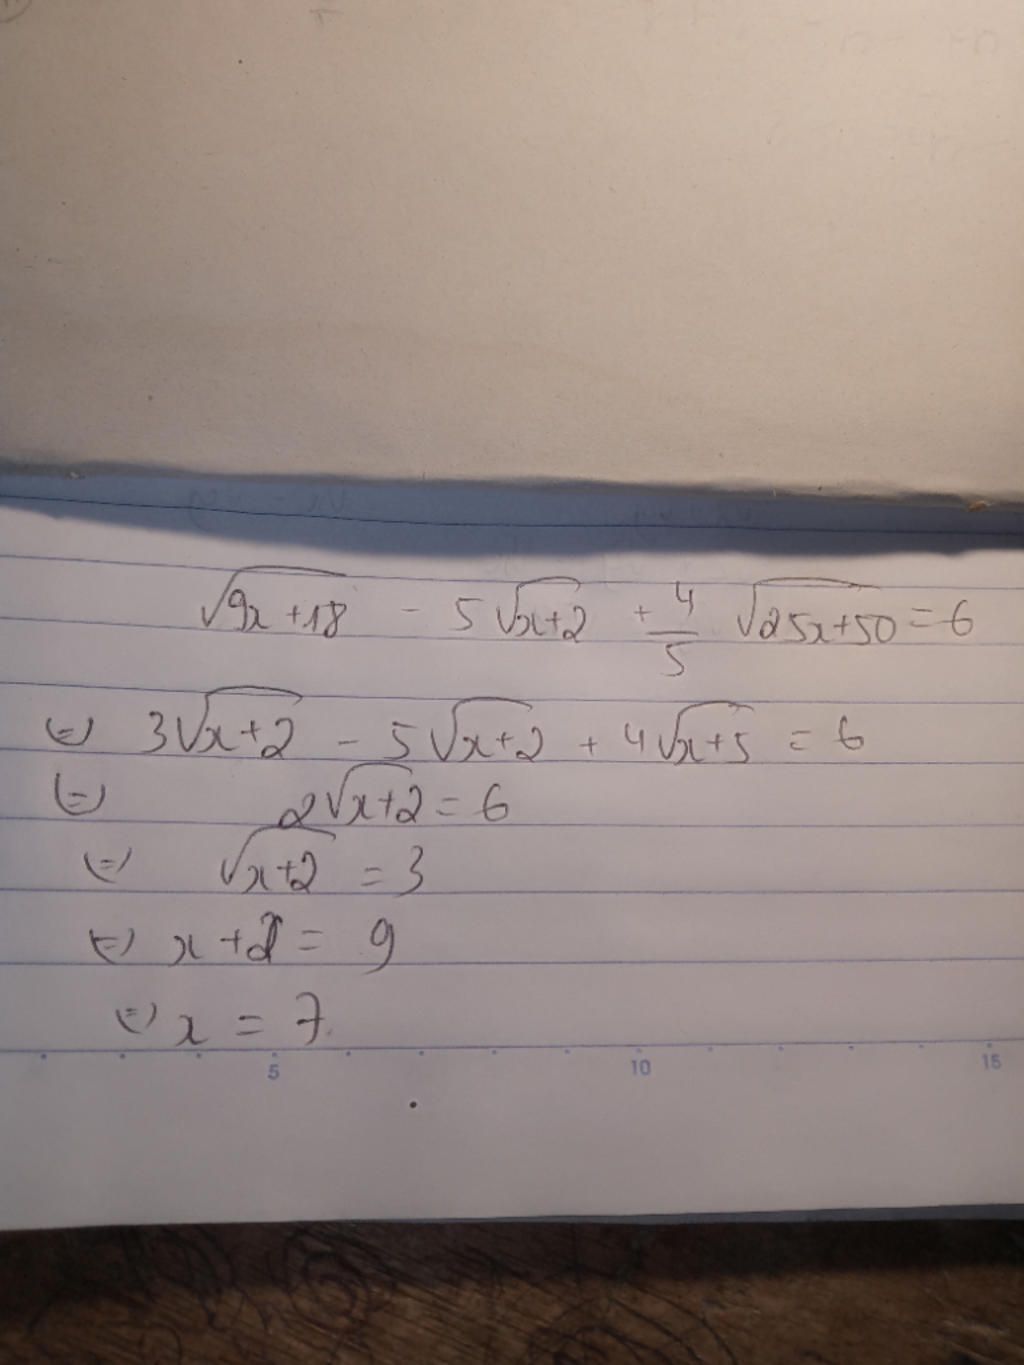 √(9x+18) - 5√(x+2) + 4/5 √(25x+50) = 6
(=) 3√(x+2) - 5√(x+2) + 4√(x+5) = 6
(=) 2√(x+2) = 6
(=) √(x+2) = 3
(=) x+2 = 9
(=) x = 7
5 10 15